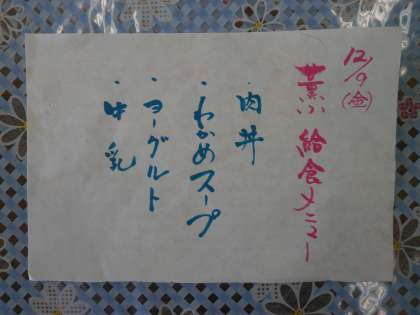 12/9(金)
給食メニュー
・肉丼
・わかめスープ
・ヨーグルト
・牛乳